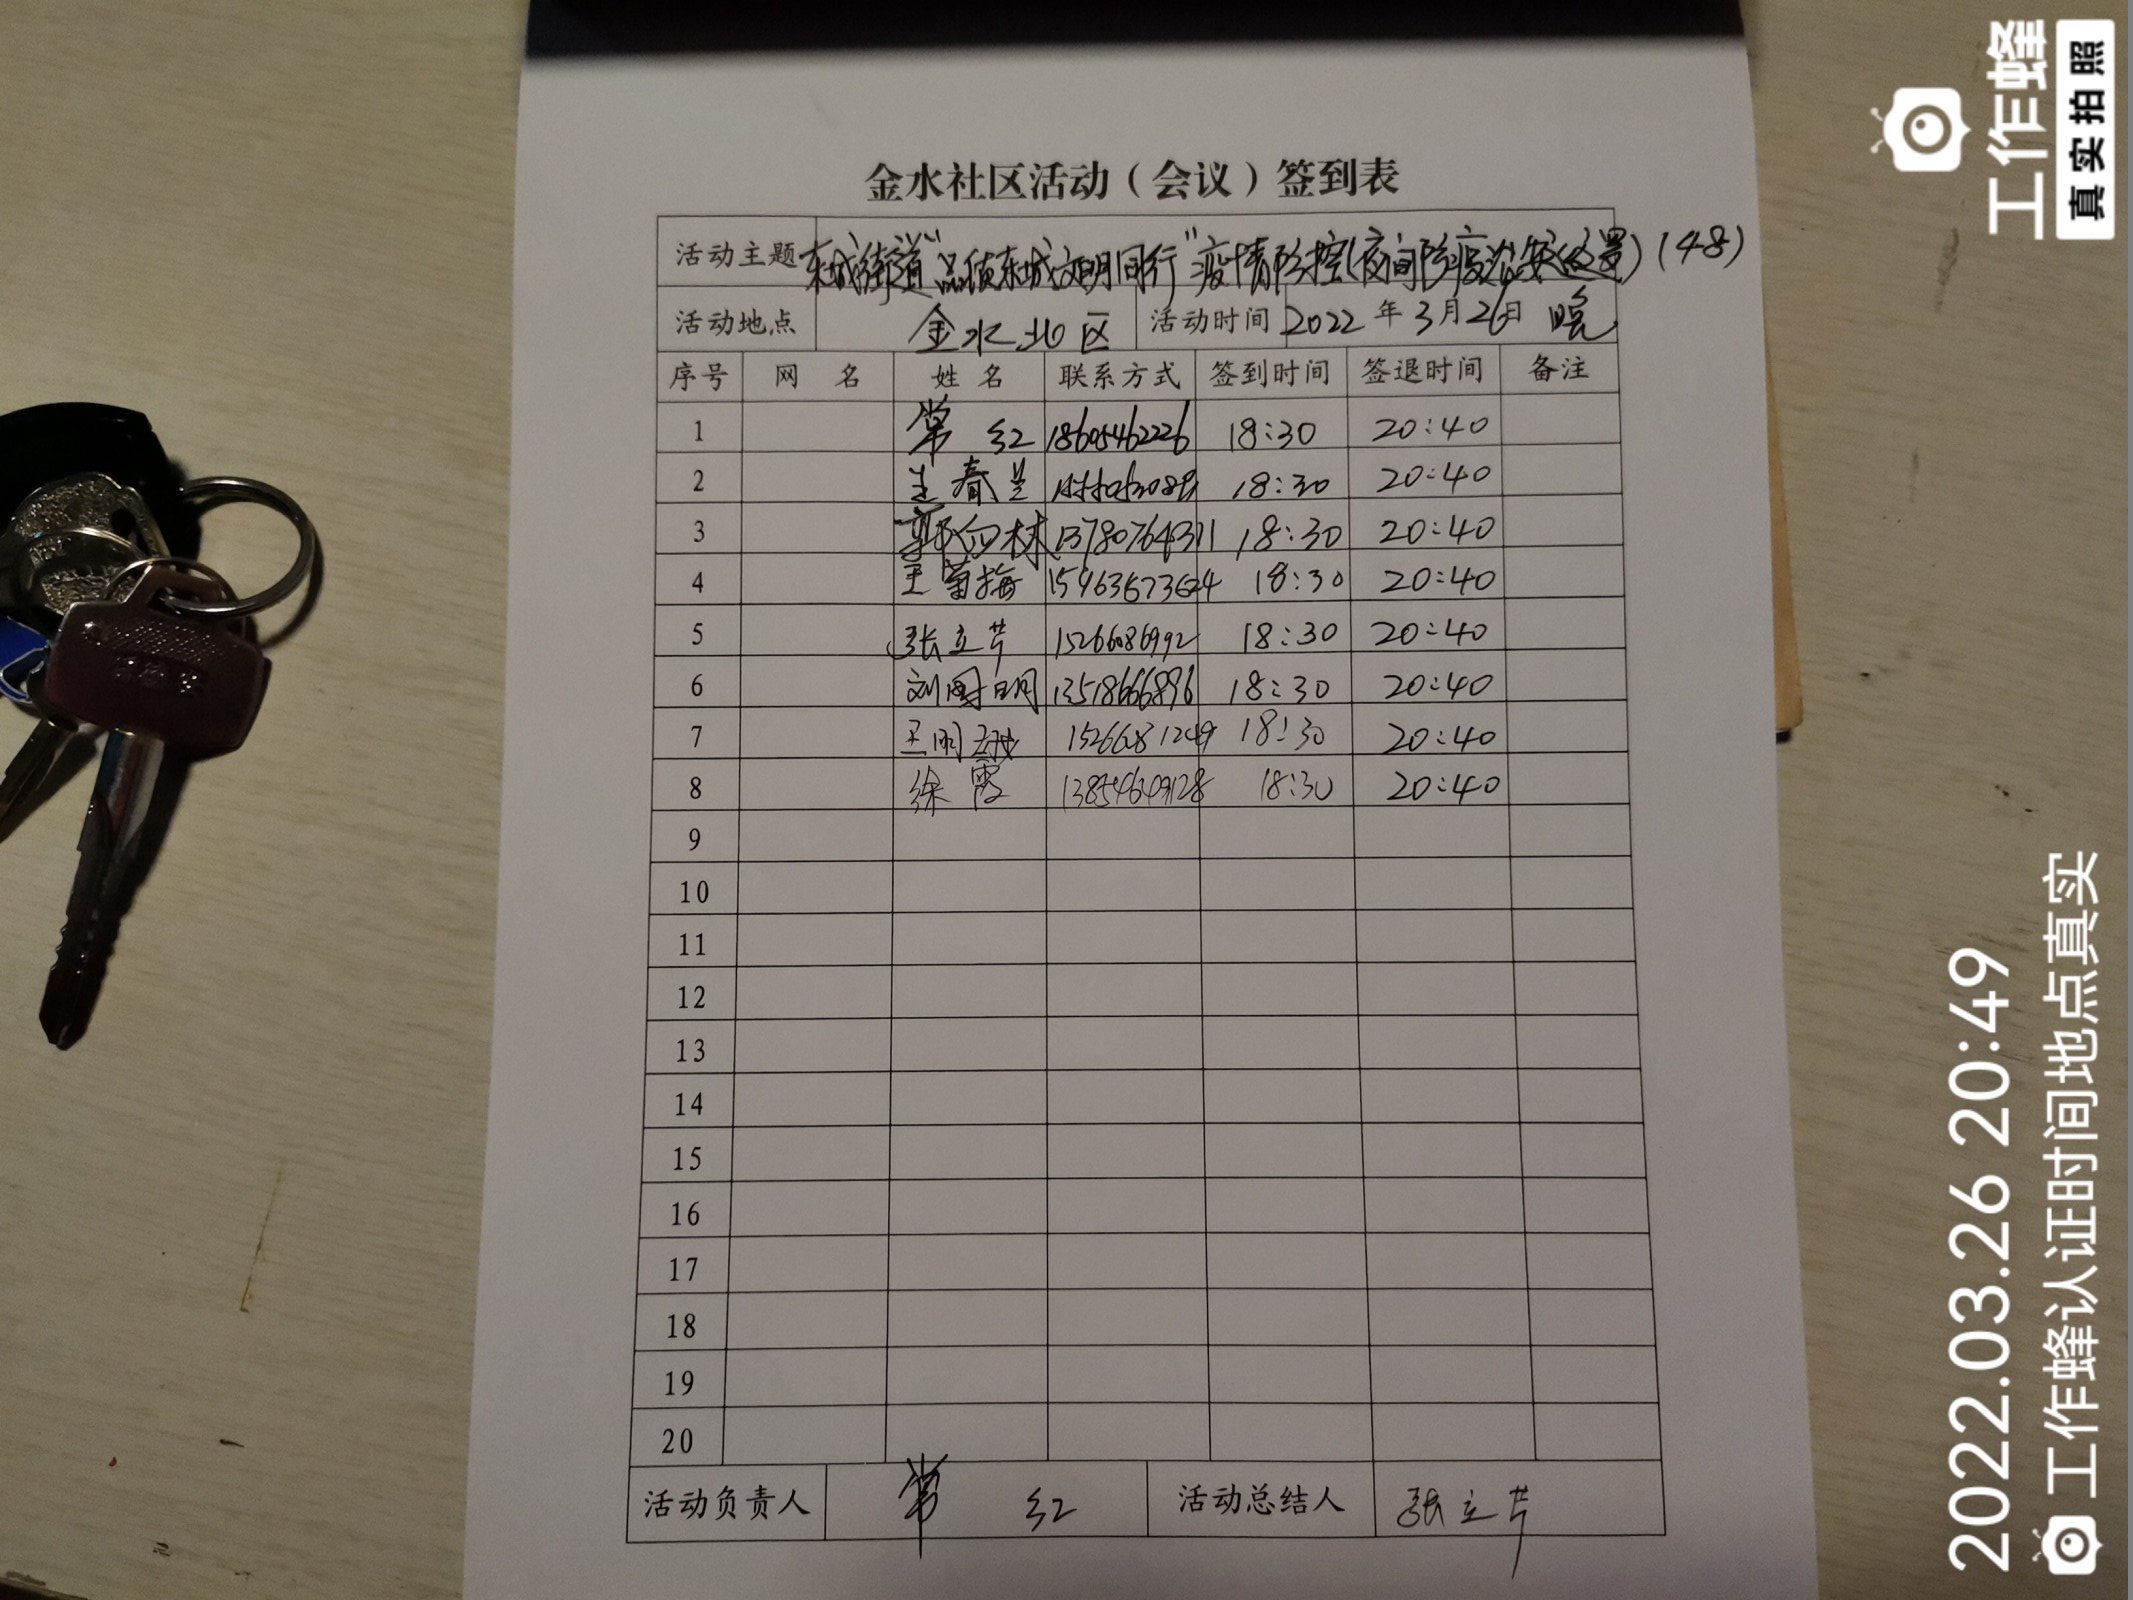 金水社区活动（会议）签到表
活动主题 东城街道"品质东城文明同行"疫情防控(夜间防疫治安)(48)
活动地点 金水北区 活动时间 2022年3月26日 晚
序号 网 名 姓 名 联系方式 签到时间 签退时间 备注
1 常 红 18605462226 18:30 20:40
2 王春兰 18:30 20:40
3 郭向林 13780764311 18:30 20:40
4 王菊梅 15963673624 18:30 20:40
5 张立芹 15266086992 18:30 20:40
6 刘国明 13518666896 18:30 20:40
7 王 18:30 20:40
8 徐霞 13854649128 18:30 20:40
9
10
11
12
13
14
15
16
17
18
19
20
活动负责人 常 红 活动总结人 张立芹
工作蜂
真实拍照
2022.03.26 20:49
工作蜂认证时间地点真实